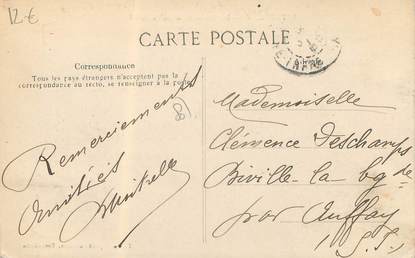 12€
CARTE POSTALE
Correspondance
Tous les pays étrangers n'acceptent pas la
correspondance au recto, se renseigner à la poste
Remerciements
Amitiés
Mademoiselle
Clémence Deschamps
Biville-la-bgde
par Auffay
S.I.